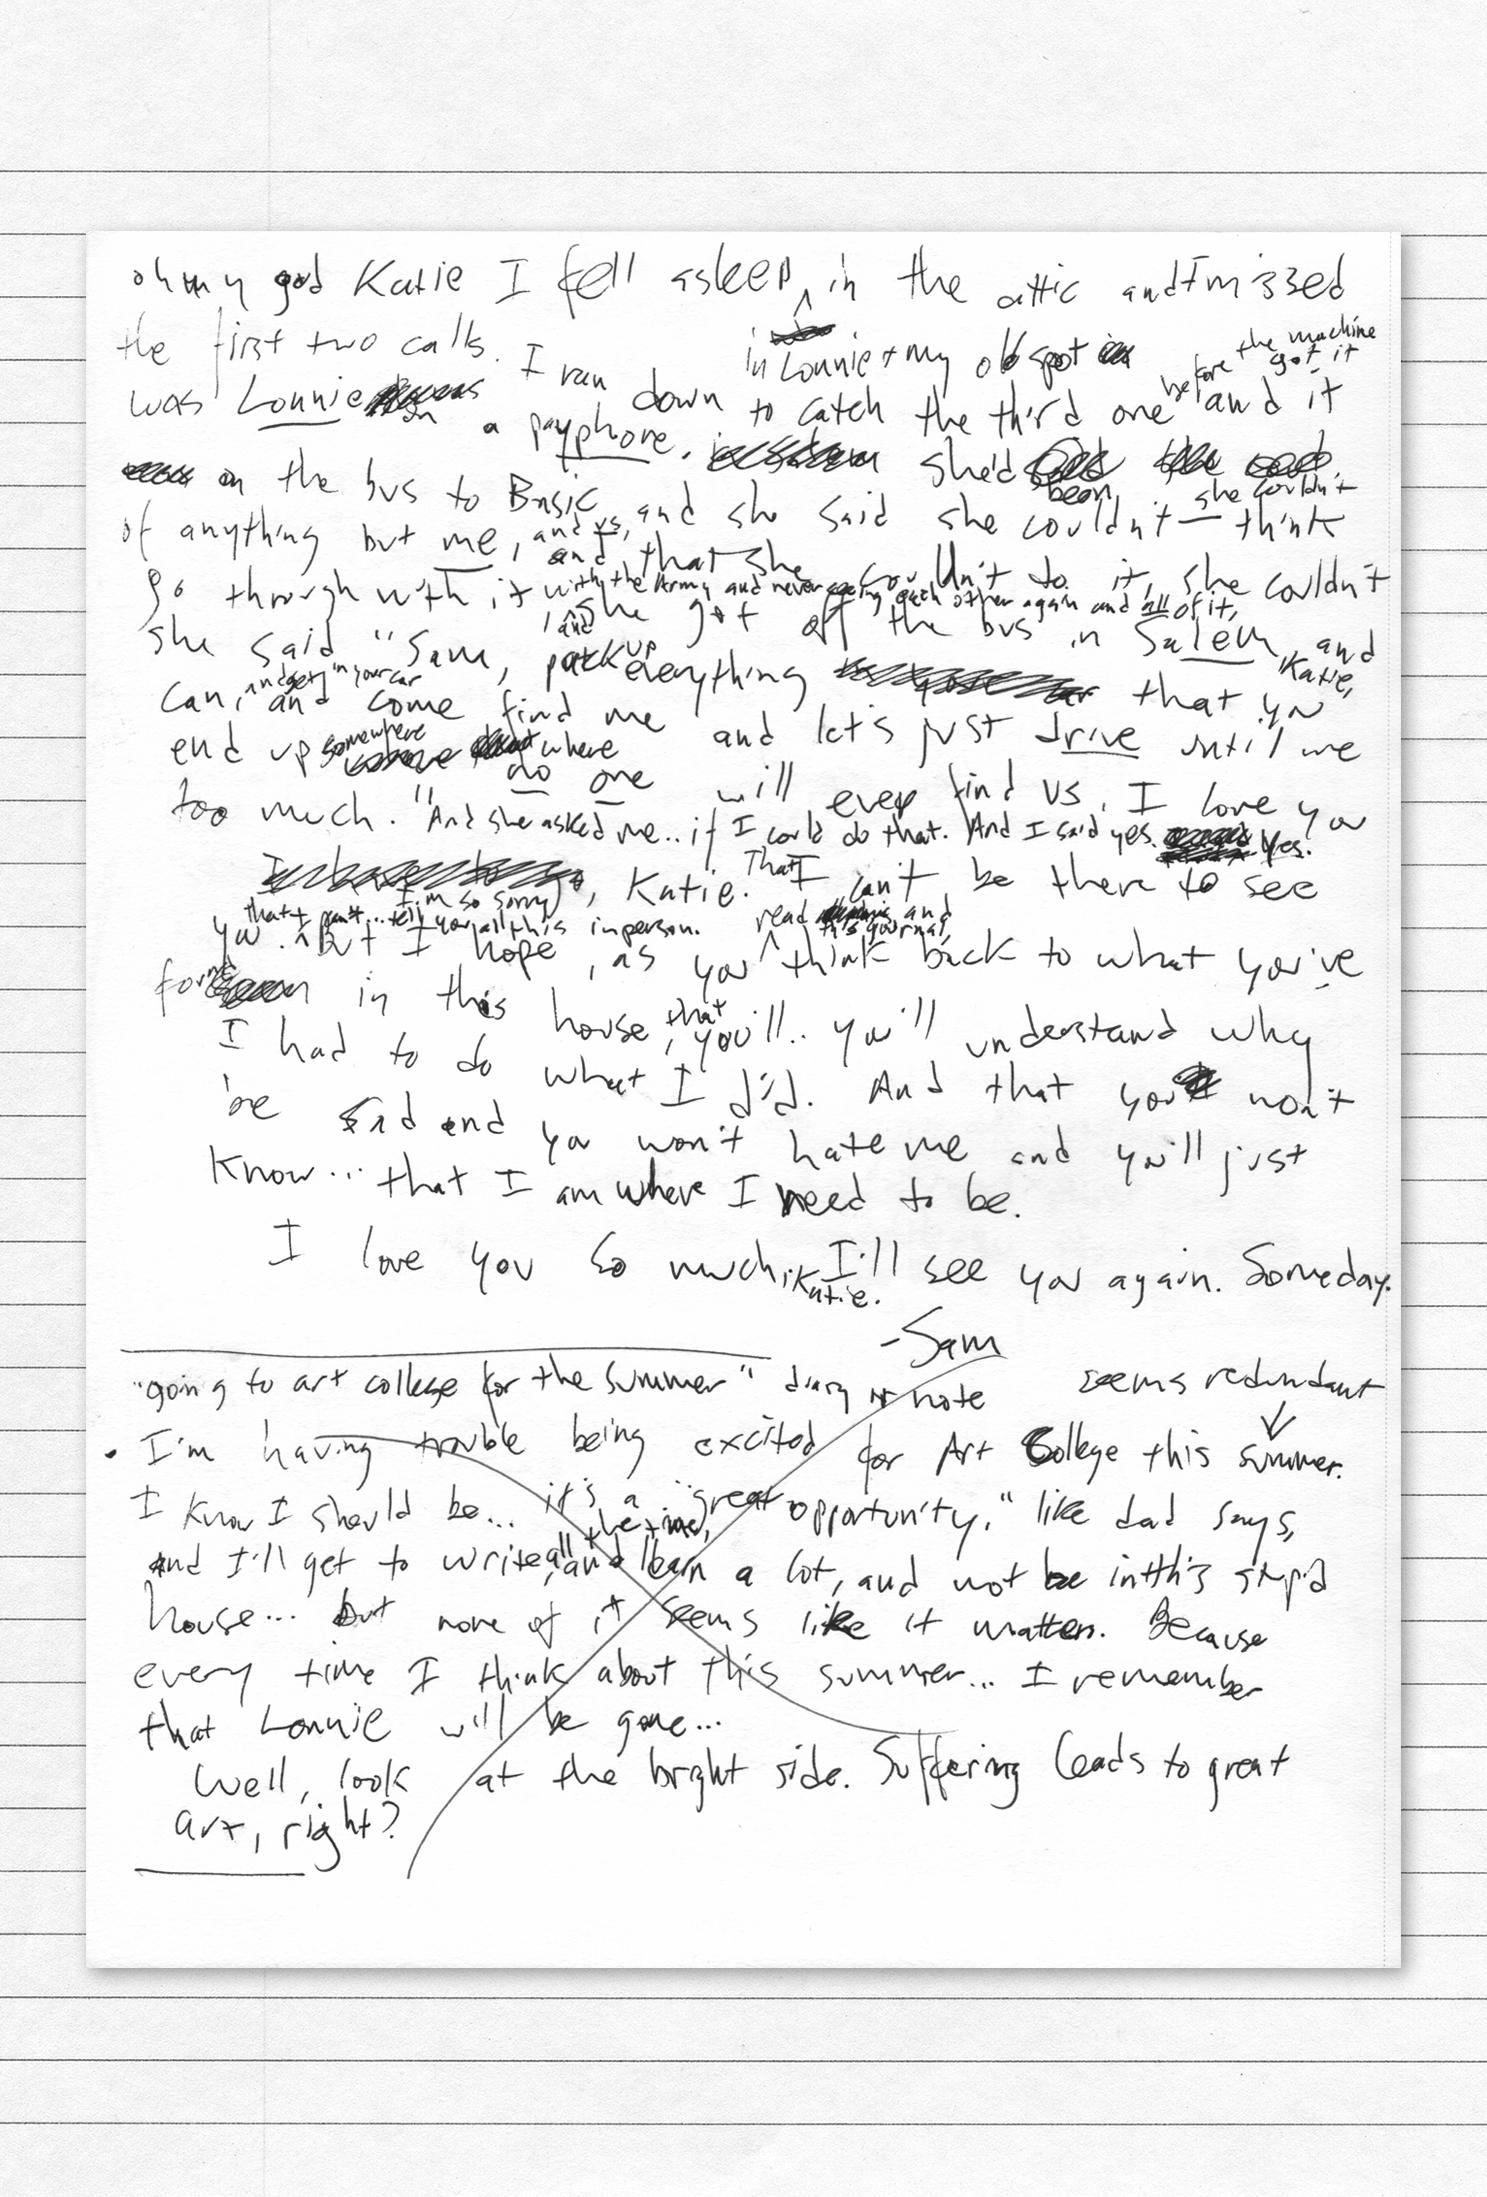 oh my god Katie I fell asleep in the attic and I missed
in Lonnie + my old spot
the first two calls. I ran down to catch the third one before the machine got it and it
was Lonnie on a payphone. she'd been
on the bus to Basic, and she said she couldn't — she couldn't think
of anything but me, and us, and that she couldn't do it, she couldn't
go through with it with the Army and never seeing each other again and all of it,
and she got off the bus in Salem, and Katie,
she said "Sam, pack up everything that you
can, and get in your car and come find me and let's just drive until we
end up somewhere where no one will ever find us. I love you
too much." And she asked me.. if I could do that. And I said yes. Yes.
I'm so sorry, Katie. That I can't be there to see
you. that I can't... tell you all this in person. But I hope, as you read this journal, and think back to what you've
found in this house, that you'll.. you'll understand why
I had to do what I did. And that you won't
be sad and you won't hate me and you'll just
know... that I am where I need to be.
I love you so much, Katie. I'll see you again. Someday.
-Sam
"going to art college for the summer" diary or note seems redundant
• I'm having trouble being excited for Art College this summer.
I know I should be... it's a "great opportunity," like dad says,
and I'll get to write all the time, and learn a lot, and not be in this stupid
house... but none of it seems like it matters. Because
every time I think about this summer... I remember
that Lonnie will be gone...
Well, look at the bright side. Suffering leads to great
art, right?